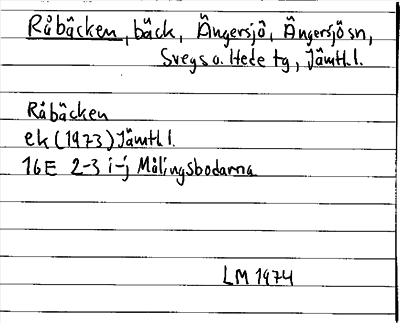 Råbäcken, bäck, Ängersjö, Ängersjösn,
Svegs o. Hede tg, Jämtl.l.
Råbäcken
ek (1973) Jämtl.l.
16E 2-3 i-j Målingsbodarna
LM 1974